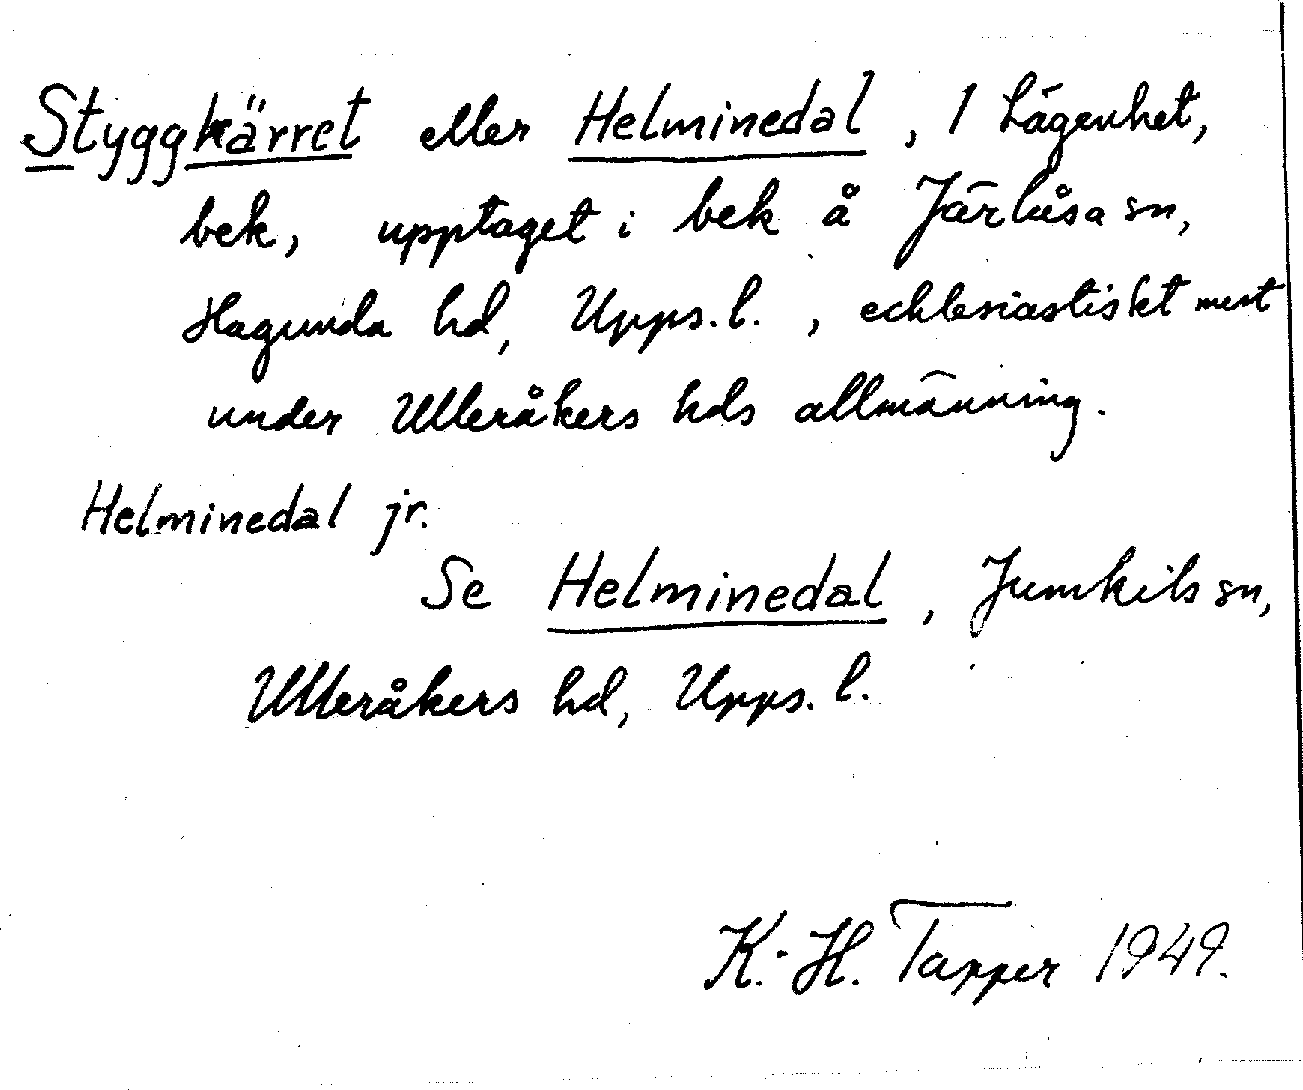 Styggkärret eller Helminedal, 1 lägenhet,
bek, upptaget i bek å Järlåsa sn,
Hagunda hd, Upps. l., ecklesiastiskt
under Ulleråkers hds allmänning.
Helminedal jr.
Se Helminedal, Jumkils sn,
Ulleråkers hd, Upps. l.
K.-H. Tapper 1949.